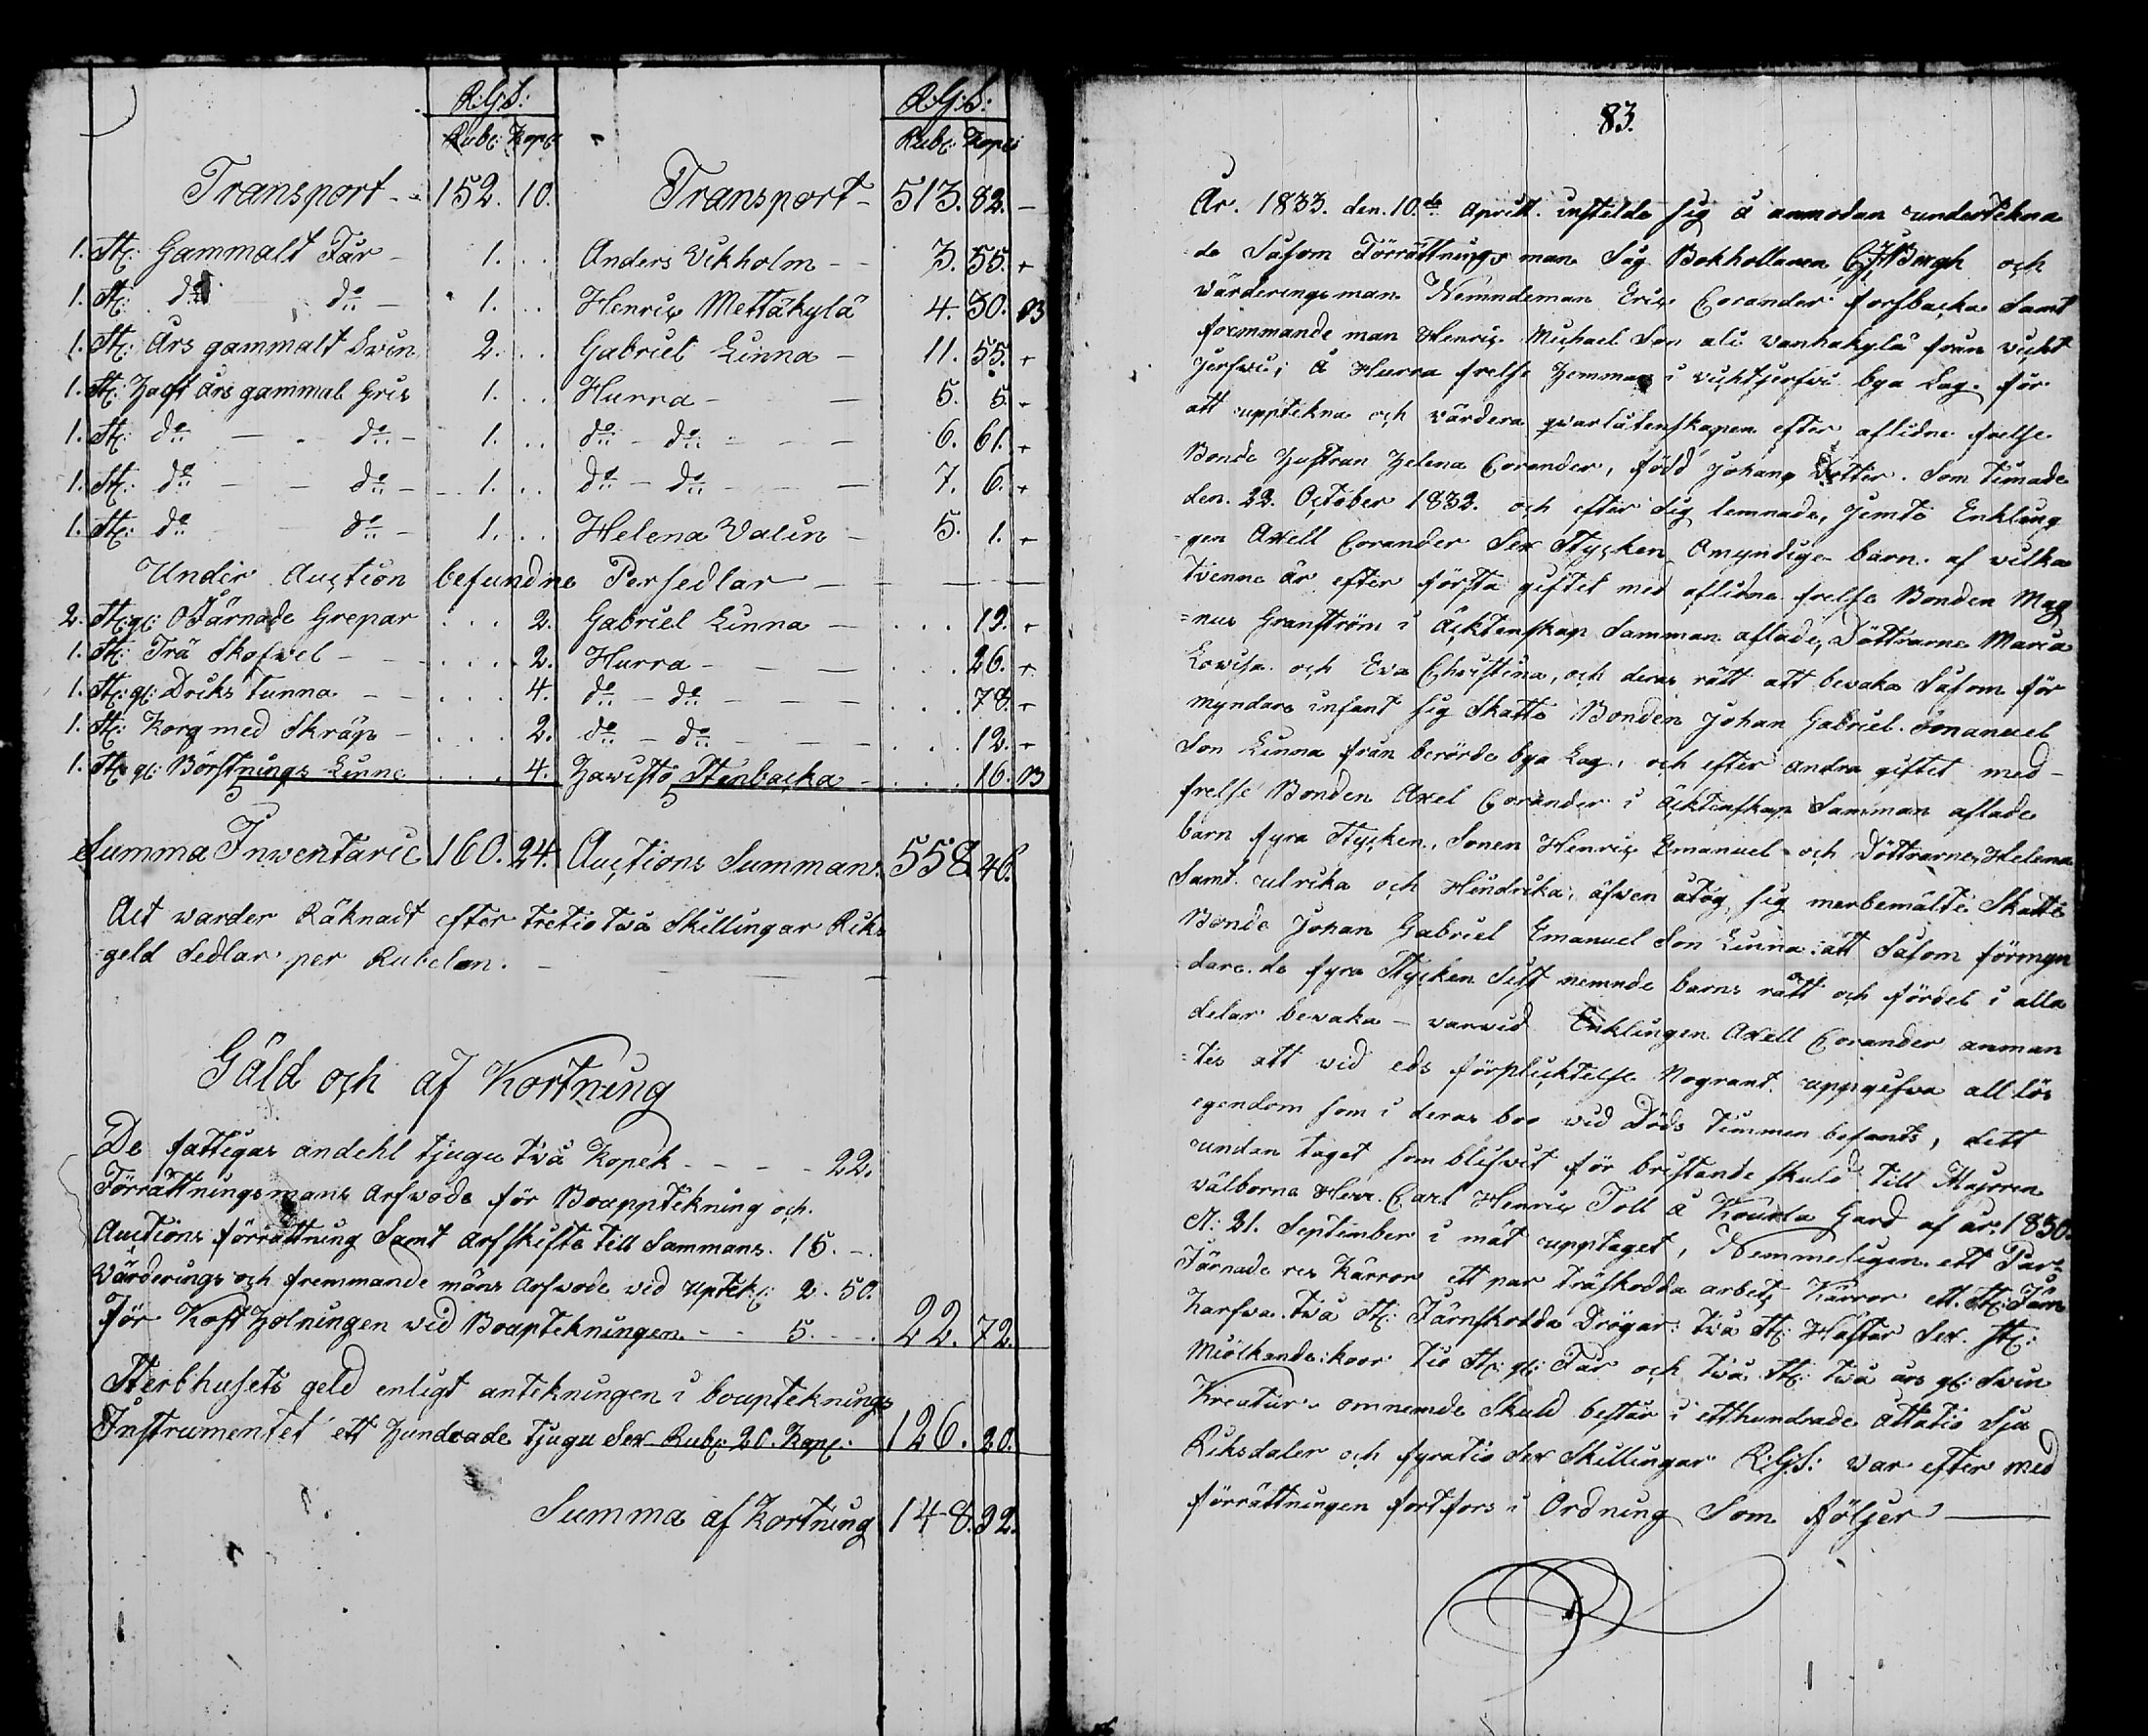 R:G:S: R:G:S:
Rub: Kope Rub: Kopek
Transport - - 152. 10. Transport - 513. 82. -
1. St: Gammalt Får - 1. . . Anders Wikholm - - 3. 55. +
1. St: do do - 1. . . Henric Mettäkylä 4. 50. B
1. St: Års gammalt Swin 2. . . Gabriel Linna - 11. 55. +
1. St: Halft års gammal Gris 1. . . Hurra - - 5. 5. -
1. St: do - - do - 1. . . do - do - - - 6. 61. +
1. St: do - - do - - 1. . . do - do - - - 7. 6. +
1. St: do - - do - 1. . . Helena Valin - 5. 1. +
Under Auction befundne Persedlar - - - -
2. St: gl: Järnade Grepar . . . 2. Gabriel Linna - . . . 12. +
1. St: Trä Skofwel - - . . . 2. Hurra - - - . . . 26. +
1. St: gl: Driks tunna - - . . . 4. do - do - - - . . . 78. +
1. St: Korg med Skräp - . . . 2. do - do - - - . . . 12. +
1. St: gl: Börstnings Linne . . . 4. Hawisto Stenbacka - . . . 16. B
Summa Inventarie 160. 24. Auctions Summan. 558. 46.
Alt warder Räknadt efter tretio twå Skillingar Riks
=geld Sedlar per Rubelen. - - -
Gäld och af Kortning
De fattigas andehl tjugu två Kopek - - - - 22.
Förrättningsmans Arfwode för Bouppteknіng och
Auctions förrättning Samt arfskifte till Sammans. 15. -
Wärderings och fremmande mäns Arfwode vid uptek: 2. 50.
För Kost Holningen vid Bouptekningen - - 5. - . 22. 72.
Sterbhusets geld enligt antekningen i bouptekning=
Instrumentet ett Hundrade tjugu Sex Rub: 20. Kop: 126. 20.
Summa af Kortning 148. 92.
83.
År. 1833. den. 10.de April. instelde sig å anmodan undertekna
=de Såsom Förrättnings man Såg Bokhollaren Borgh och
värderingsman Nemndeman Eric Corander forsbacka Samt
fremmande man Henric Michael Son ali vanhakylä från vicht
jerfwi, å Hurra frelse Hemman i vichtjerfwi bya Lag. för
att upptekna och värdera qvarlåtenskapen efter aflidne frelse
Bonde Hustrun Helena Corander, född Johans Dotter. Som timade
den. 22. October 1832. och efter Sig lemnade, Jemte Enkling
=gen Axell Corander Sex Stycken Omyndige barn. af vilka
tvenne är efter första giftet med aflidne frelse Bonden Mag
=nus Granström i Äcktenskap Samman aflade, Döttrarne Maria
Lowisa och Eva Christina, och deras rätt att bevaka Såsom för
myndare infant sig Skatte Bonden Johan Gabriel Emanuel
Son Linna från berörde bya Lag, och efter andra giftet med -
frelse Bonden Axel Corander i Äcktenskap Samman aflade
barn fyra Stycken, Sonen Henric Emanuel och Döttrarne Helena
Samt ulrika och Hindrika, äfwen åtog sig merbemälte Skatte
Bonde Johan Gabriel Emanuel Son Linna: att Såsom förmyn
=dare de fyra Stycken Sist nemnde barns rätt och fördel i alla
delar bewaka - warvid Enklingen Axell Corander anman
=tes att vid eds förplicktelse Nogrant uppgifwa all lös
egendom som i deras boo vid Döds timmen befants, dett
undan taget som blifwit för bristande skuld till Majoren
wälborne Herr. Carl Henric Toll å Kourla Gard af år. 1830.
d: 21. September i mät upptaget, Nemmeligen. ett Par
Järnade res Kärror ett par träskodda arbets Kärror ett. St: Järn
Harfwa. två St: Järnskodda Drögar: två St: Hästar Sex. St:
Miölkande: koor tio St: gl: Får och twå St: twå års gl: Swin
Kreatur. omnemde Skuld består i etthundrade åttatio Sju
Riksdaler och fyratio Sex Skillingar R:G:S: war efter med
förrättningen fortfors i Ordning Som följer